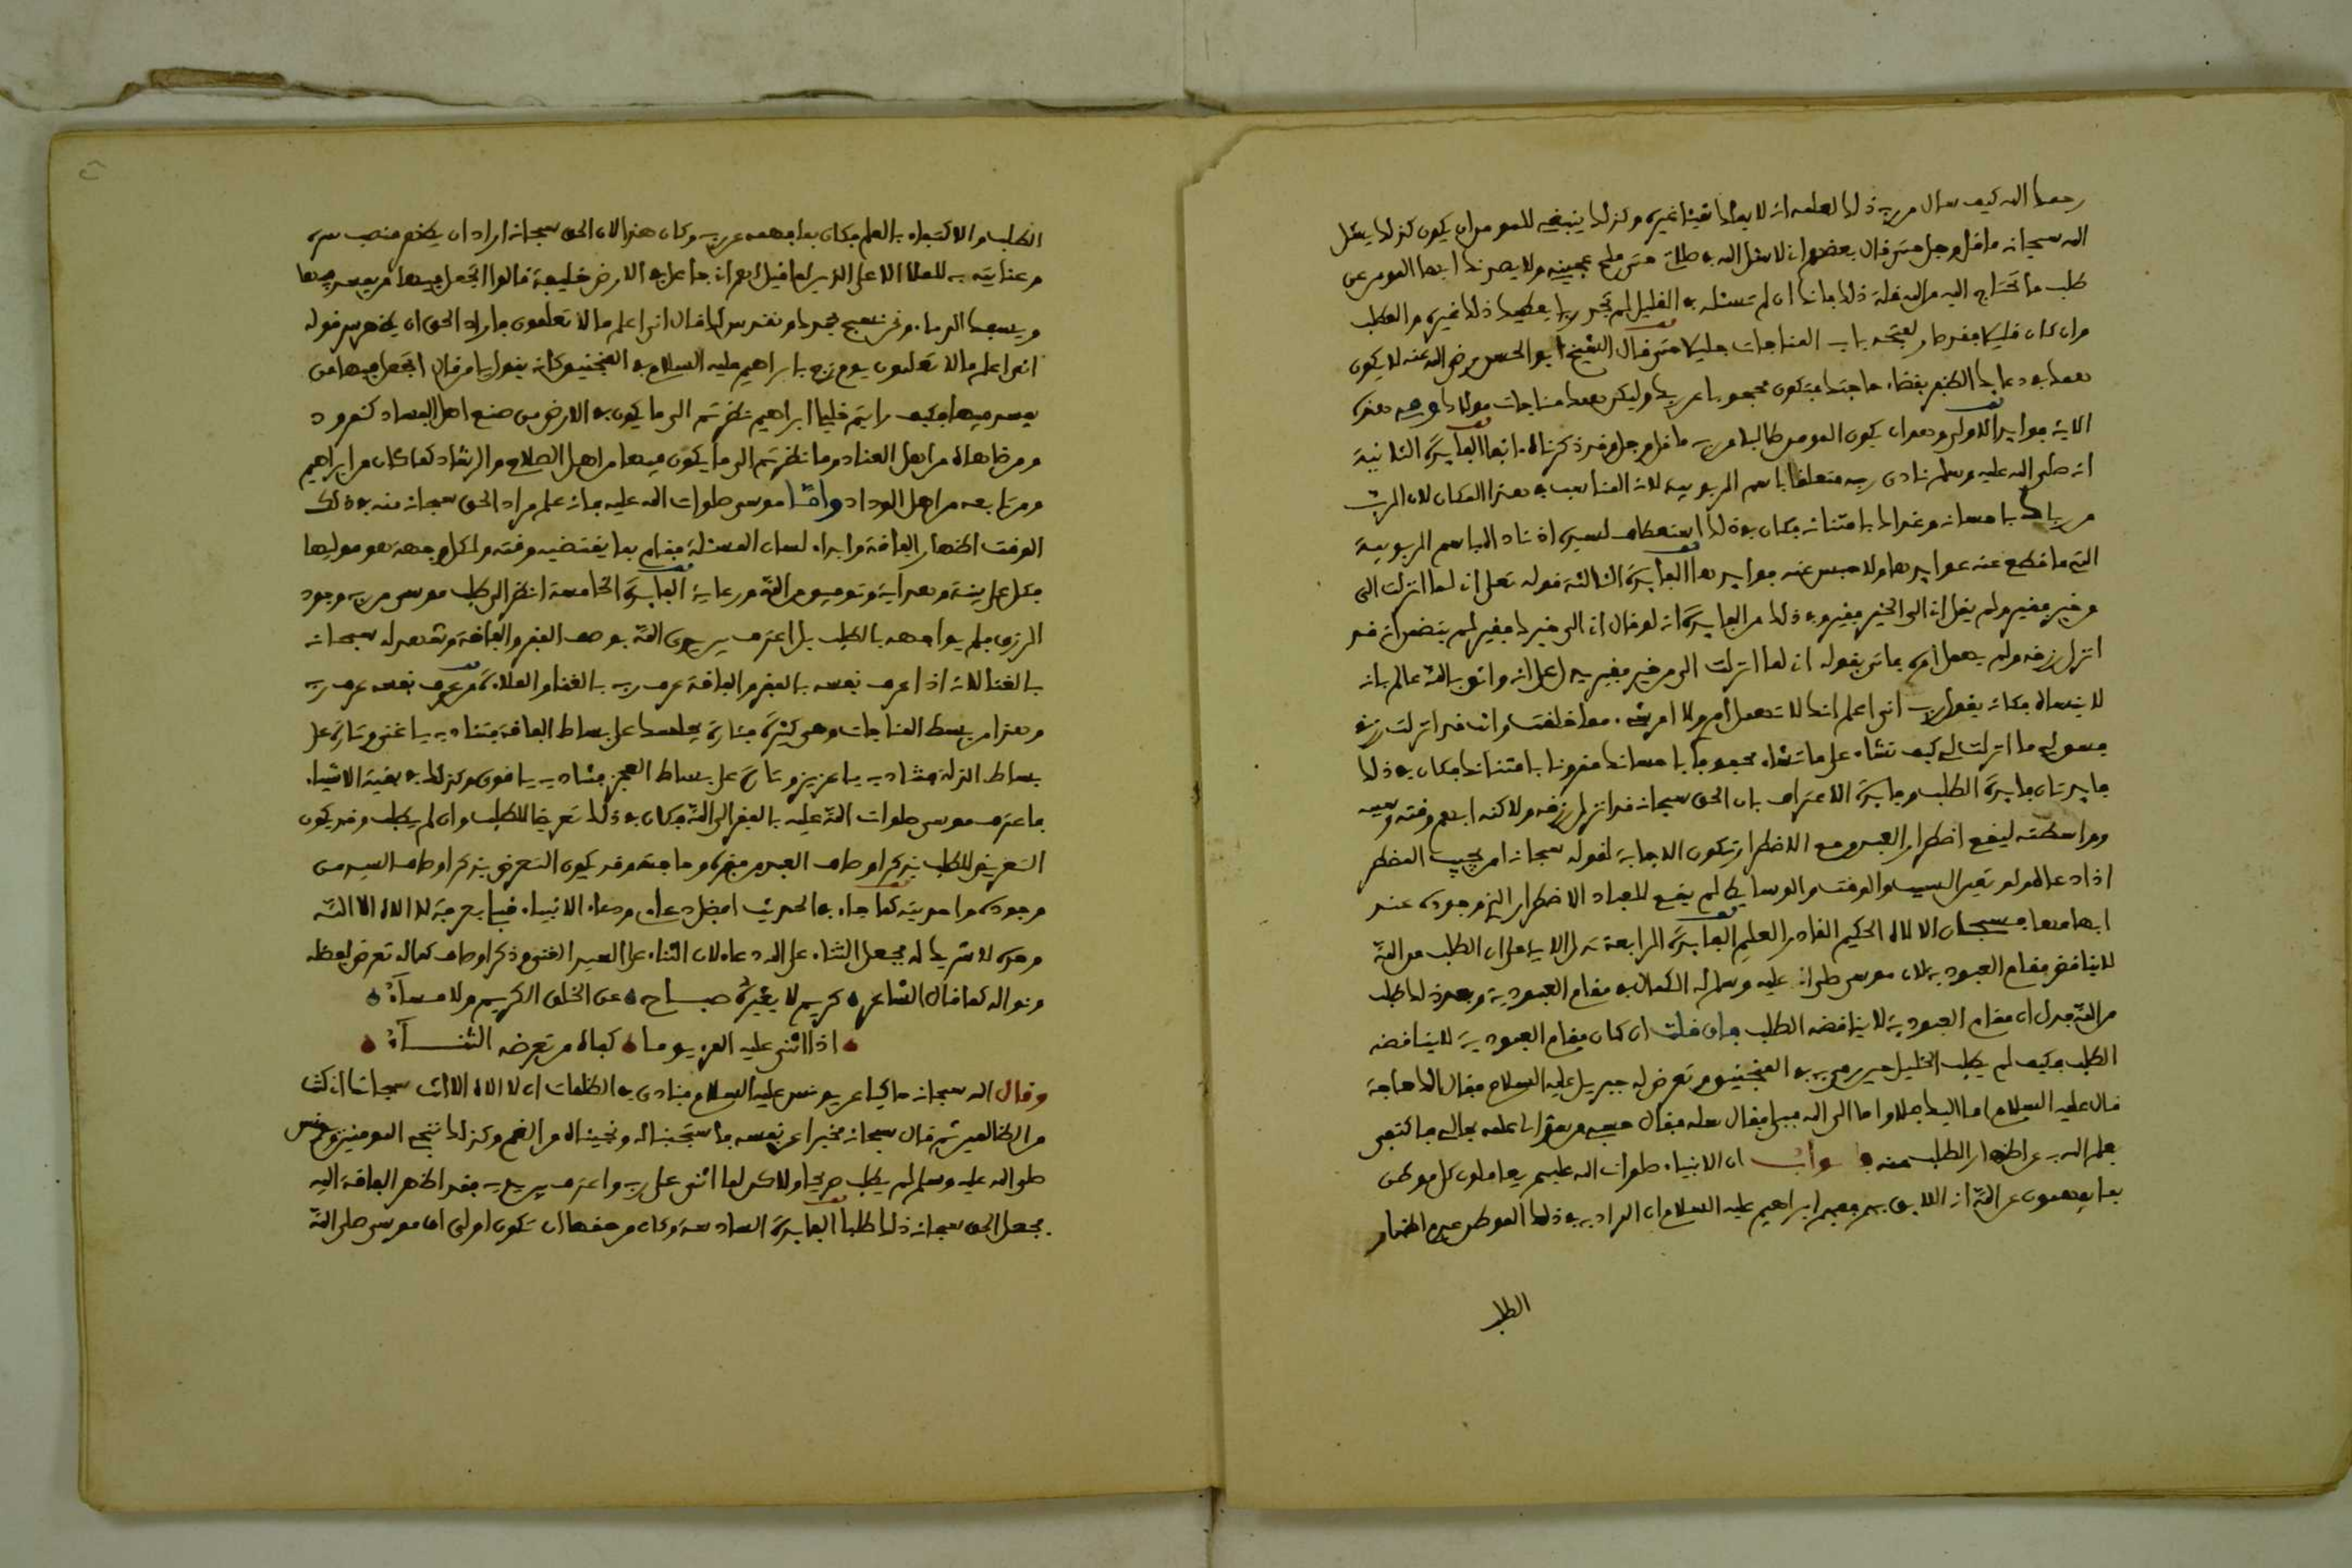 رحمك الله كيف سال من ربه ذلك لعلمه انه لا يملك شيئا غيره وكذلك ينبغي للمومن ان يكون كذلك يسئل
الله سبحانه ما قل وجل حتى قال بعضهم اني لاسئل الله في صلاتي حتى ملح عجيني ولا يصدنك ايها المومن عن
طلب ما تحتاج اليه من الله قلة ذلك فانك ان لم تسئله في القليل لم تجد ربا يعطيك ذلك غيره والطلب
وان كان قليلا فقد صار لفتحه باب المناجات جليلا حتى قال الشيخ ابو الحسن رضي الله عنه لا يكون
همك في دعايك الظفر بقضاء حاجتك فتكون محجوبا عن ربك وليكن همك مناجات مولاك وفي هذه
الاية فوايد الاولى وهو ان يكون المومن طالبا من ربه ما قل وجل وقد ذكرناه انفا الفايدة الثانية
انه صلى الله عليه وسلم نادى ربه متعلقا باسم الربوبية لانه المناسب في هذا المكان لان الرب
من رباك باحسانه وغذاك بامتنانه فكان في ذلك استعطاف لسيده اذ ناداه باسم الربوبية
التي ما قطع عنه عوايدها ولا حبس عنه فوايدها الفايدة الثالثة قوله تعلى اني لما انزلت الي
من خير فقير ولم يقل اني الى الخير فقير وفي ذلك من الفايدة انه لو قال اني الى خيرك فقير لم يتضمن انه قد
انزل رزقه ولم يهمل امره فاتى بقوله اني لما انزلت الي من خير فقير ليدل على انه واثق بالله عالم بانه
لا ينساه فكانه يقول رب اني اعلم انك لا تهمل امري ولا امر شيء مما خلقت وانك قد انزلت رزقي
فسق لي ما انزلت لي كيف تشاء على ما تشاء محفوفا باحسانك مقرونا بامتنانك فكان في ذلك
فايدتان فايدة الطلب وفايدة الاعتراف بان الحق سبحانه قد انزل رزقه ولاكنه ابهم وقته وسببه
وواسطته ليقع اضطرار العبد ومع الاضطرار تكون الاجابة لقوله سبحانه امن يجيب المضطر
اذا دعاه ولو تعين السبب والوقت والوسايط لم يقع للعباد الاضطرار الذي وجوده عند
ابهامها فسبحان الالاه الحكيم القادر العليم الفايدة الرابعة تدل الاية على ان الطلب من الله
لا يناقض مقام العبودية لان موسى صلى الله عليه وسلم له الكمال في مقام العبودية ومع ذلك طلب
من الله فدل ان مقام العبودية لا يناقضه الطلب فان قلت ان كان مقام العبودية لا يناقضه
الطلب فكيف لم يطلب الخليل حين رمي به في المنجنيق وتعرض له جبريل عليه السلام فقال الك حاجة
قال عليه السلام اما اليك فلا واما الى الله فبلى فقال سله فقال حسبي من سؤالي علمه بحالي فاكتفى
بعلم الله به عن اظهار الطلب منه فالجواب ان الانبياء صلوات الله عليهم يعاملون كل موطن
بما يفهمون عن الله انه اللايق بهم ففهم ابراهيم عليه السلام ان المراد به في ذلك الموطن عدم اظهار
الطلب
الطلب والاكتفاء بالعلم فكان بما فهمه عن ربه وكان هذا لان الحق سبحانه اراد ان يظهر منصب سره
وعنايته به للملا الاعلى الذين لما قيل لهم اني جاعل في الارض خليفة قالوا اتجعل فيها من يفسد فيها
ويسفك الدماء ونحن نسبح بحمدك ونقدس لك قال اني اعلم ما لا تعلمون فاراد الحق ان يظهر سر قوله
اني اعلم ما لا تعلمون يوم زج بابراهيم عليه السلام في المنجنيق كانه يقول يا من قال اتجعل فيها من
يفسد فيها فكيف رايتم خليلي ابراهيم نظرتم الى ما يكون في الارض من صنع اهل الفساد كنمرود
ومن ضاهاه من اهل العناد وما نظرتم الى ما يكون فيها من اهل الصلاح والرشاد كما كان من ابراهيم
ومن تابعه من اهل الوداد واما موسى صلوات الله عليه فانه علم مراد الحق سبحانه منه في ذلك
الوقت اظهار الفاقة وابداء لسان المسئلة فقام بما يقتضيه وقته ولكل وجهة هو موليها
فكل على بينة وهداية وتوفيق من الله ورعاية الفايدة الخامسة انظر الى طلب موسى من ربه وجود
الرزق فلم يواجهه بالطلب بل اعترف بين يدي الله بوصف الفقر والفاقة وشهد له سبحانه
بالغنا لانه اذا عرف نفسه بالفقر والفاقة عرف ربه بالغنا والملاءة من عرف نفسه عرف ربه
وهذا من بسط المناجات وهي كثيرة فتارة يجلسك على بساط الفاقة فتناديه يا غني وتارة على
بساط الذلة فتناديه يا عزيز وتارة على بساط العجز فتناديه يا قوي وكذلك في بقية الاشياء
فاعترف موسى صلوات الله عليه بالفقر الى الله فكان في ذلك تعريضا للطلب وان لم يطلب وقد يكون
التعريض للطلب بذكر اوصاف العبد من فقره وحاجته وقد يكون التعرض بذكر اوصاف السيد من
وجوده واحديته كما جاء في الحديث افضل دعاءي ودعاء الانبياء قبلي يوم عرفة لا الاه الا الله
وحده لا شريك له فجعل الثناء على الله دعاء لان الثناء على السيد الغني وذكر اوصاف كماله تعرض لفضله
ونواله كما قال الشاعر كريم لا يغيره صباح عن الخلق الكريم ولا مساء
اذا اثنى عليه المرء يوما كفاه من تعرضه الثناء
وقال الله سبحانه حاكيا عن يونس عليه السلام فنادى في الظلمات ان لا الاه الا انت سبحانك اني كنت
من الظالمين ثم قال سبحانه مخبرا عن نفسه فاستجبنا له ونجيناه من الغم وكذلك ننجي المومنين ويونس
صلى الله عليه وسلم لم يطلب صريحا ولاكن لما اثنى على ربه واعترف بين يديه فقد اظهر الفاقة اليه
فجعل الحق سبحانه ذلك طلبا الفايدة السادسة وكان من حقها ان تكون اولى ان موسى صلى الله